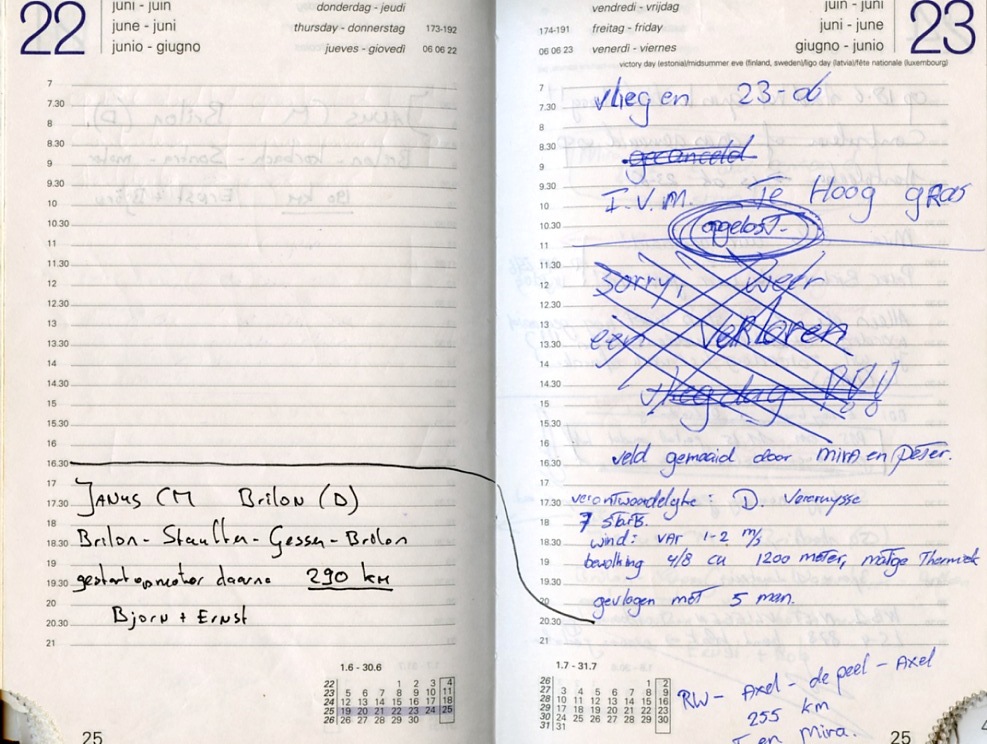 22
juni - juin
june - juni
junio - giugno
donderdag - jeudi
thursday - donnerstag 173-192
jueves - giovedì 06 06 22
7
7.30
8
8.30
9
9.30
10
10.30
11
11.30
12
12.30
13
13.30
14
14.30
15
15.30
16
16.30
17
JANUS CM Brilon (D)
17.30
18
Brilon - - - Brilon
18.30
19
gestart op motor daarna 290 km
19.30
20
Bjorn + Ernst
20.30
21
1.6 - 30.6
22 1 2 3 4
23 5 6 7 8 9 10 11
24 12 13 14 15 16 17 18
25 19 20 21 22 23 24 25
26 26 27 28 29 30
25
vendredi - vrijdag
174-191 freitag - friday
06 06 23 venerdì - viernes
juin - juni
juni - june
giugno - junio
23
victory day (estonia)/midsummer eve (finland, sweden)/ligo day (latvia)/fête nationale (luxembourg)
7
7.30
vliegen 23-06
8
8.30
gecanceld
9
9.30
I.V.M. Te Hoog gras
10
10.30
opgelost
11
11.30
12
sorry, weer
12.30
13
een verloren
13.30
14
14.30
vliegdag !!!
15
15.30
16
veld gemaaid door mira en peter.
16.30
17
verantwoordelijke: D. Vereruysse
17.30
7 starts.
18
wind: var 1-2 m/s
18.30
19
bewolking 4/8 cu 1200 meter, matige Thermiek
19.30
20
gevlogen met 5 man.
20.30
21
1.7 - 31.7
26 1 2
27 3 4 5 6 7 8 9
28 10 11 12 13 14 15 16
29 17 18 19 20 21 22 23
30 24 25 26 27 28 29 30
31 31
RW - Axel - de peel - Axel
255 km
en Mira.
25